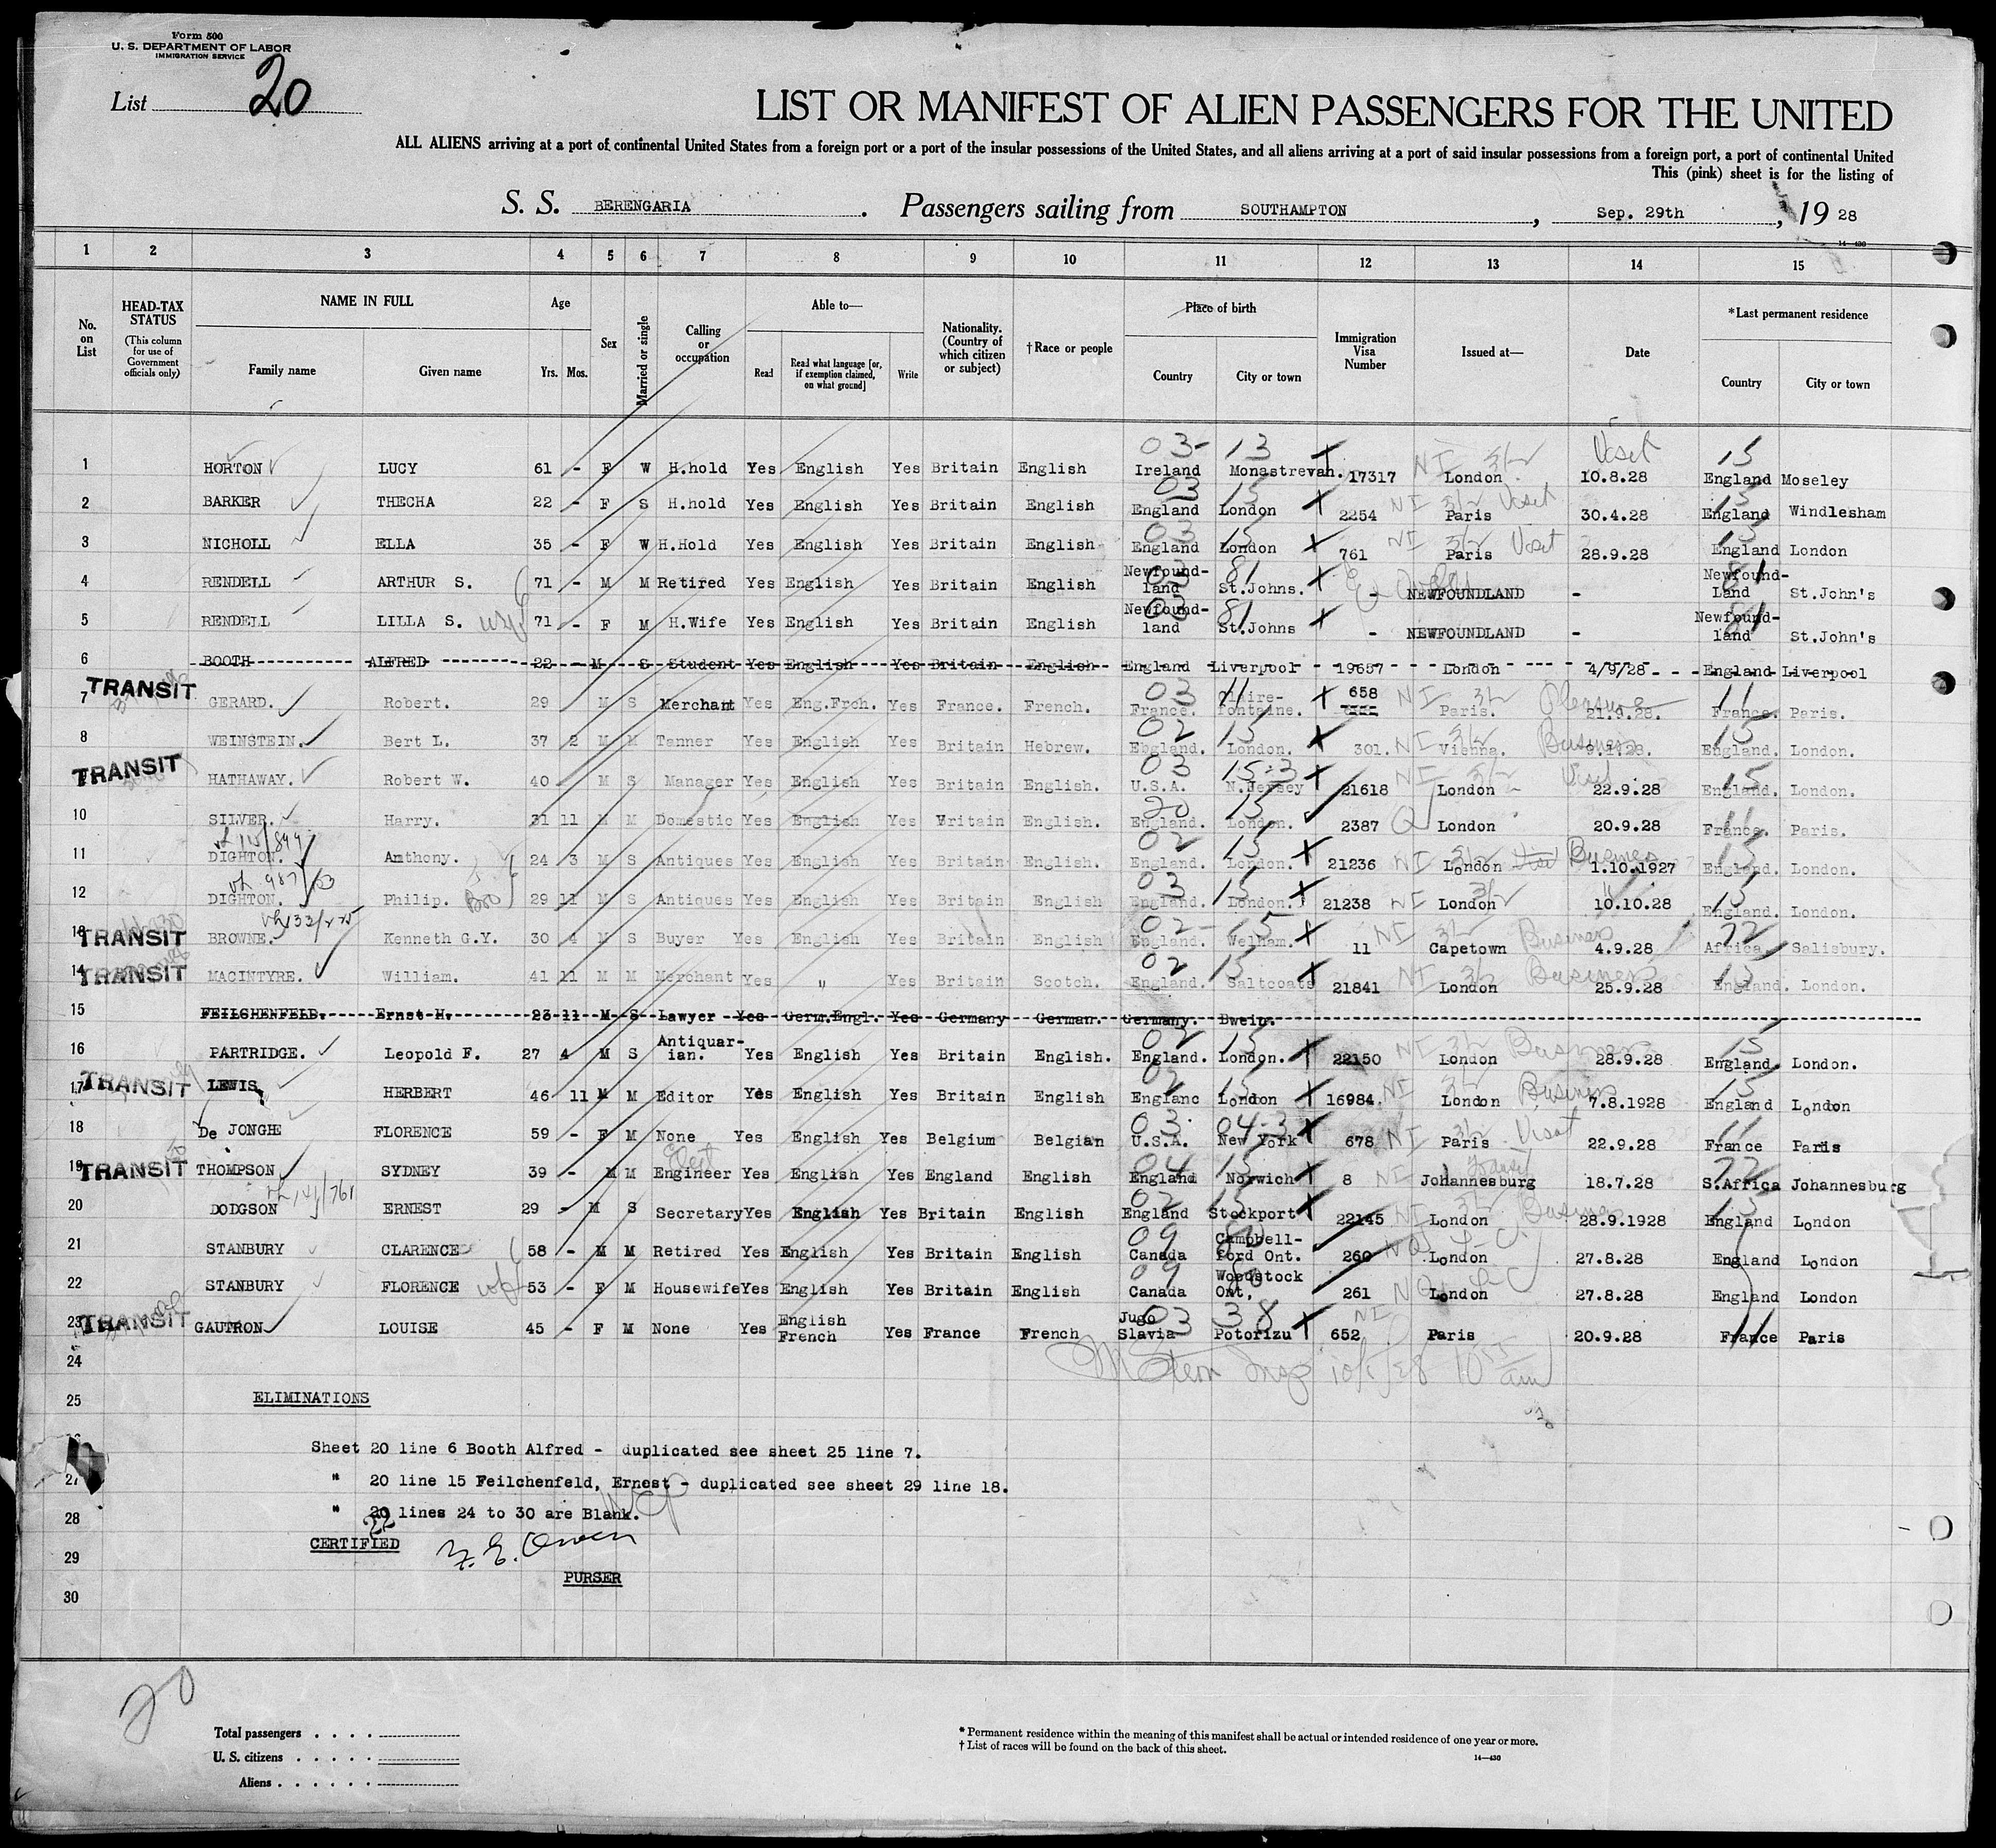 Form 500
U. S. DEPARTMENT OF LABOR
IMMIGRATION SERVICE
List 20
LIST OR MANIFEST OF ALIEN PASSENGERS FOR THE UNITED
ALL ALIENS arriving at a port of continental United States from a foreign port or a port of the insular possessions of the United States, and all aliens arriving at a port of said insular possessions from a foreign port, a port of continental United
This (pink) sheet is for the listing of
S. S. BERENGARIA. Passengers sailing from SOUTHAMPTON, Sep. 29th, 19 28
14-430
1 2 3 4 5 6 7 8 9 10 11 12 13 14 15
No. on List
HEAD-TAX STATUS (This column for use of Government officials only)
NAME IN FULL
Family name Given name
Age Yrs. Mos.
Sex
Married or single
Calling or occupation
Able to— Read Read what language [or, if exemption claimed, on what ground] Write
Nationality. (Country of which citizen or subject)
†Race or people
Place of birth Country City or town
Immigration Visa Number
Issued at—
Date
*Last permanent residence Country City or town
03- 13 NI 3/2 Visit 15
1 HORTON LUCY 61 - F W H.hold Yes English Yes Britain English Ireland Monastrevan. 17317 London 10.8.28 England Moseley
03 15 NI 3/2 Visit 15
2 BARKER THECHA 22 - F S H.hold Yes English Yes Britain English England London 2254 Paris 30.4.28 England Windlesham
03 15 NI 3/2 Visit 15
3 NICHOLL ELLA 35 - F W H.Hold Yes English Yes Britain English England London 761 Paris 28.9.28 England London
03 81 81
4 RENDELL ARTHUR S. 71 - M M Retired Yes English Yes Britain English Newfound-land St.Johns. - NEWFOUNDLAND - Newfound-Land St.John's
03 81 81
5 RENDELL LILLA S. wife 71 - F M H.Wife Yes English Yes Britain English Newfound-land St.Johns - NEWFOUNDLAND - Newfound-land St.John's
6 BOOTH ALFRED 22 - M S Student Yes English Yes Britain English England Liverpool 19657 London 4/9/28 England Liverpool
TRANSIT 03 11 NI 3/2 Pleasure 11
7 GERARD. Robert. 29 M S Merchant Yes Eng.Frch. Yes France. French. France. fontaine. 658 Paris. 21.9.28. France. Paris.
02 15 NI 3/2 Business 15
8 WEINSTEIN. Bert L. 37 2 M M Tanner Yes English Yes Britain Hebrew. Ebgland. London. 301. Vienna. England. London.
TRANSIT 03 15-3 NI 3/2 Visit 15
HATHAWAY. Robert W. 40 M S Manager Yes English Yes Britain English. U.S.A. N.Jersey 21618 London 22.9.28 England. London.
20 15 Q 11
10 SILVER. Harry. 31 11 M M Domestic Yes English Yes Vritain English. England. London. 2387 London 20.9.28 France. Paris.
02 15 NI 3/2 Visit Business 15
11 DIGHTON. Anthony. 24 3 M S Antiques Yes English Yes Britain English. England. London. 21236 London 1.10.1927 England. London.
03 15 NI 3/2 15
12 DIGHTON. Philip. Bro 29 11 M S Antiques Yes English Yes Britain English England. London. 21238 London 10.10.28 England. London.
02 15 NI 3/2 Business 72
13 TRANSIT BROWNE. Kenneth G.Y. 30 4 M S Buyer Yes English Yes Britain English England. Welham. 11 Capetown 4.9.28 Africa. Salisbury.
02 15 NI 3/2 Business 15
14 TRANSIT MACINTYRE. William. 41 11 M M Merchant Yes " Yes Britain Scotch. England. Saltcoats 21841 London 25.9.28 England. London.
15 FEILCHENFELD. Ernst H. 23 11 M S Lawyer Yes Germ.Engl. Yes Germany German. Germany. Bwein.
02 15 NI 3/2 Business 15
16 PARTRIDGE. Leopold F. 27 4 M S Antiquar-ian. Yes English Yes Britain English. England. London. 22150 London 28.9.28 England. London.
02 15 NI 3/2 Business 15
17 TRANSIT LEWIS HERBERT 46 11 M M Editor Yes English Yes Britain English Englanc London 16984. London 7.8.1928 England London
03 04-3 NI 3/2 Visit 11
18 De JONGHE FLORENCE 59 - F M None Yes English Yes Belgium Belgian U.S.A. New York 678 Paris 22.9.28 France Paris
04 15 NI Transit 72
19 TRANSIT THOMPSON SYDNEY 39 - M M Engineer Yes English Yes England English England Norwich 8 Johannesburg 18.7.28 S.Africa Johannesburg
02 15 NI 3/2 Business 15
20 DODGSON ERNEST 29 - M S Secretary Yes English Yes Britain English England Stockport 22145 London 28.9.1928 England London
09 80 NQ
21 STANBURY CLARENCE 58 - M M Retired Yes English Yes Britain English Canada Campbell-ford Ont. 260 London 27.8.28 England London
09 80 NQ
22 STANBURY FLORENCE wife 53 - F M Housewife Yes English Yes Britain English Canada Woodstock Ont, 261 London 27.8.28 England London
03 38 NI 11
23 TRANSIT GAUTRON LOUISE 45 - F M None Yes English French Yes France French Jugo Slavia Potorizu 652 Paris 20.9.28 France Paris
24 M Stern Insp 10/5/28 10 55 am
25 ELIMINATIONS
Sheet 20 line 6 Booth Alfred - duplicated see sheet 25 line 7.
27 " 20 line 15 Feilchenfeld, Ernest - duplicated see sheet 29 line 18.
28 " 20 lines 24 to 30 are Blank.
22
CERTIFIED F. E. Owen
29
PURSER
30
20
Total passengers
U. S. citizens
Aliens
* Permanent residence within the meaning of this manifest shall be actual or intended residence of one year or more.
† List of races will be found on the back of this sheet.
14—430